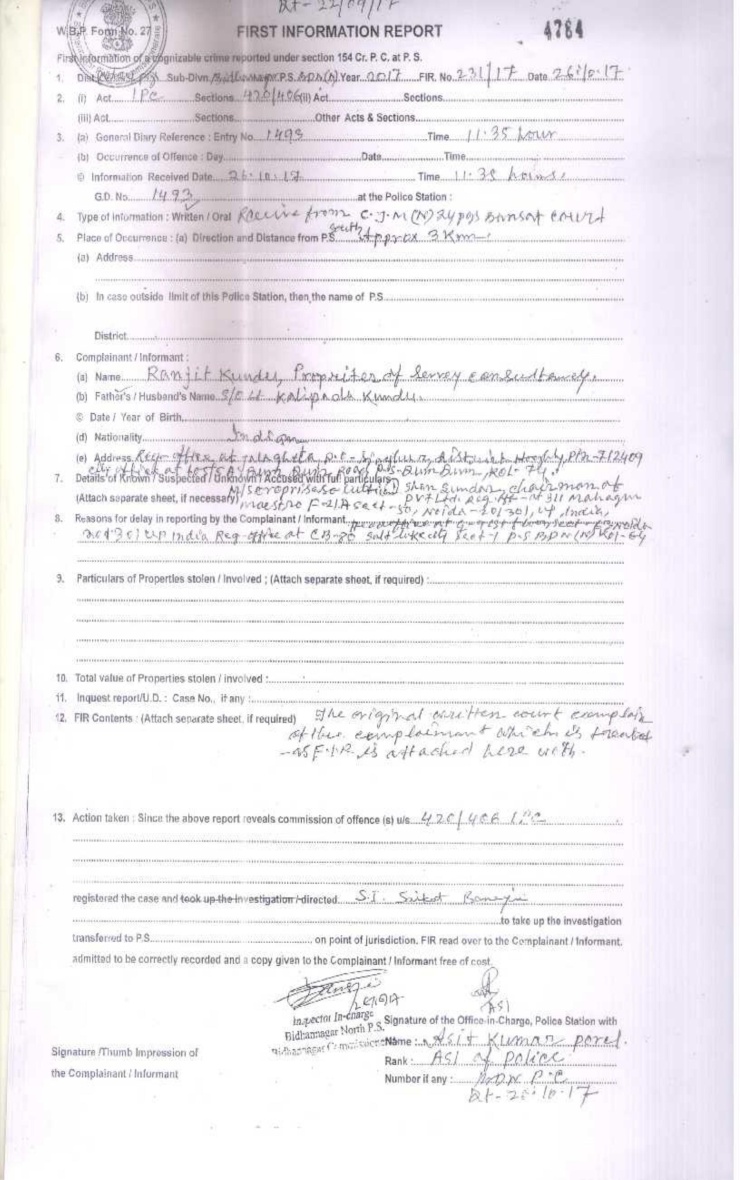 Dt- 22/09/17
W.B.P. Form No. 27
FIRST INFORMATION REPORT
4764
First Information of a cognizable crime reported under section 154 Cr. P. C. at P. S.
1. Dist. Sub-Divn. Bidhannagar P.S. BDN(N) Year 2017 FIR. No. 231/17 Date 26.10.17
2. (i) Act IPC Sections 420/406 (ii) Act Sections
(iii) Act Sections Other Acts & Sections
3. (a) General Diary Reference : Entry No. 1493 Time 11.35 hour
(b) Occurrence of Offence : Day Date Time
© Information Received Date 26.10.17 Time 11.35 hours.
G.D. No. 1493 at the Police Station :
4. Type of information : Written / Oral Receive from C.J.M (N) 24 pgs Barasat court
5. Place of Occurrence : (a) Direction and Distance from P.S. South Approx 3 Km.
(a) Address
(b) In case outside limit of this Police Station, then the name of P.S
District
6. Complainant / Informant :
(a) Name Ranjit Kundu, Propriter of Servey consultancy.
(b) Father's / Husband's Name S/O Lt Kalipada Kundu.
© Date / Year of Birth
(d) Nationality Indian
(e) Address Reg- office at P.S- district Hooghly Pin-712409
city office at Dum Dum Road P.S- Dum Dum, Kol- 74.
7. Details of Known / Suspected / Unknown / Accused with full particulars
Shen Sundar, chairman of
(Attach separate sheet, if necessary) M/s Pvt Ltd. Reg. off- at 311 Mahagun
maestro F-21A sect-50, Noida-201301, UP, India,
8. Reasons for delay in reporting by the Complainant / Informant
UP India Reg-office at CB-80 salt lake city sect-1 P.S BDN(N) Kol-64
9. Particulars of Properties stolen / Involved ; (Attach separate sheet, if required) :
10. Total value of Properties stolen / involved :
11. Inquest report/U.D. : Case No., if any :
12. FIR Contents : (Attach separate sheet, if required) The original written court complain
of the complainant which is treated
as F.I.R is attached here with.
13. Action taken : Since the above report reveals commission of offence (s) u/s 420/406 IPC
registered the case and took up the investigation / directed S.I. Saikat Banerjie
to take up the investigation
transferred to P.S. on point of jurisdiction. FIR read over to the Complainant / Informant.
admitted to be correctly recorded and a copy given to the Complainant / Informant free of cost.
ASI
Inspector In-charge
Signature of the Office-in-Charge, Police Station with
Bidhannagar North P.S.
Bidhannagar Commissionerate
Name : Asit Kumar porel.
Signature /Thumb Impression of
Rank : ASI of police
the Complainant / Informant
Number if any : BDN P.C
Dt- 26.10.17